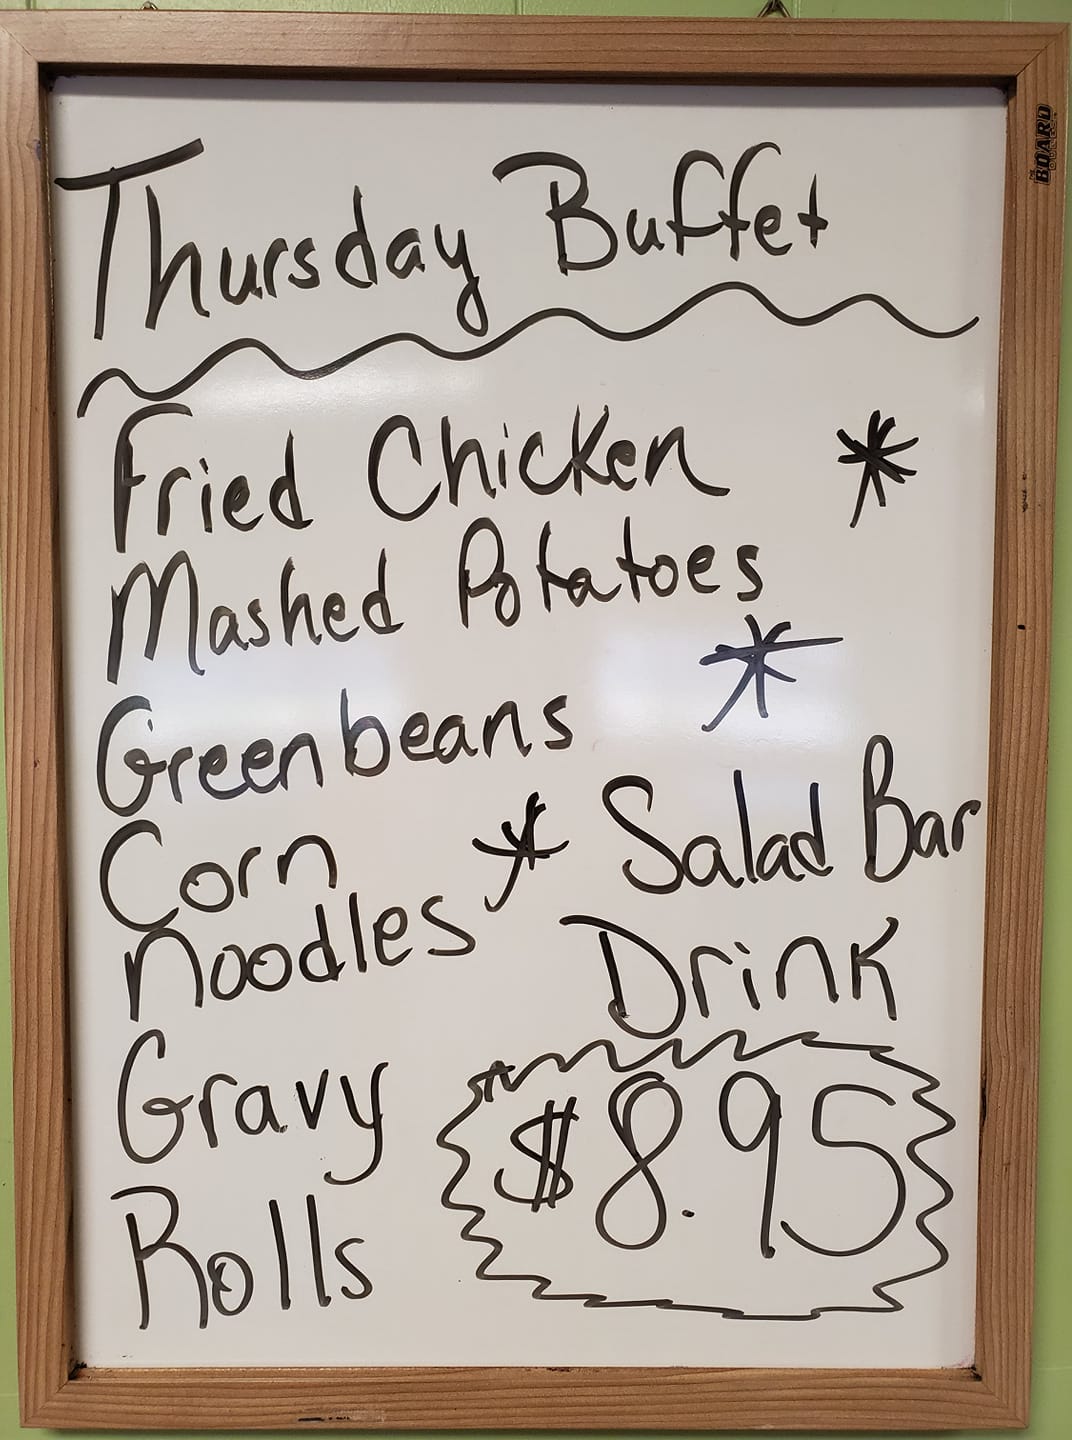 Thursday Buffet
Fried Chicken
Mashed Potatoes
Greenbeans
Corn
noodles
Gravy
Rolls
Salad Bar
Drink
$8.95
THE BOARD